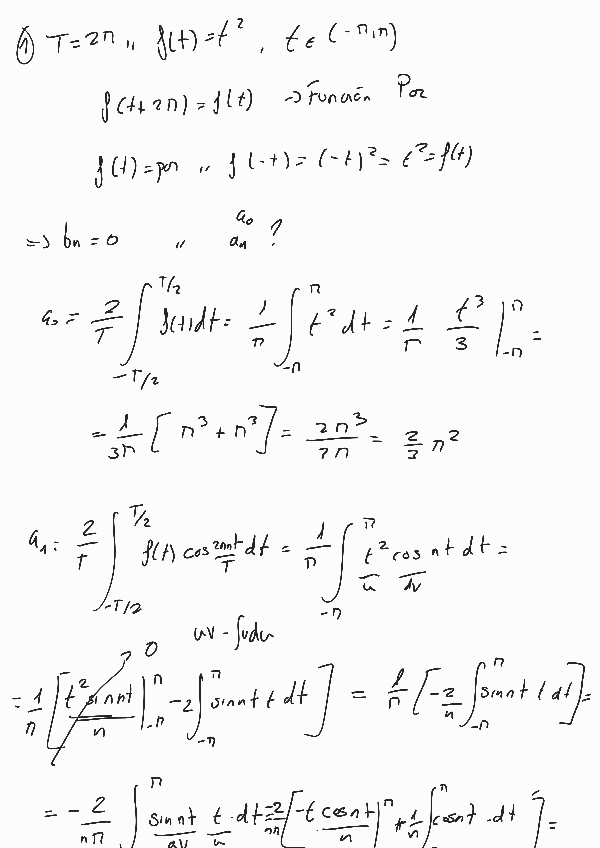 ① T=2π ,, f(t)=t² , t ∈ (-π,π)
f(t+2π)=f(t) → Función Par
f(t)=par ,, f(-t)=(-t)²=t²=f(t)
⇒ bn=0 ,, a₀ an ?
a₀ = 2/T ∫_{-T/2}^{T/2} f(t)dt = 1/π ∫_{-π}^{π} t² dt = 1/π t³/3 |_{-π}^{π} =
= 1/3π [π³+π³] = 2π³/3π = 2/3 π²
a₁ = 2/T ∫_{-T/2}^{T/2} f(t) cos 2πnt/T dt = 1/π ∫_{-π}^{π} t² cos nt dt =
u dv
uv - ∫vdu
0
= 1/π [t² sin nt/n |_{-π}^{π} - 2 ∫_{-π}^{π} sin nt t dt] = 1/π [-2/n ∫_{-π}^{π} sin nt t dt] =
= -2/nπ ∫^{π} sin nt t · dt = -2/nπ [-t cos nt/n |^{π} + 1/n ∫^{π} cos nt · dt] =
dv u